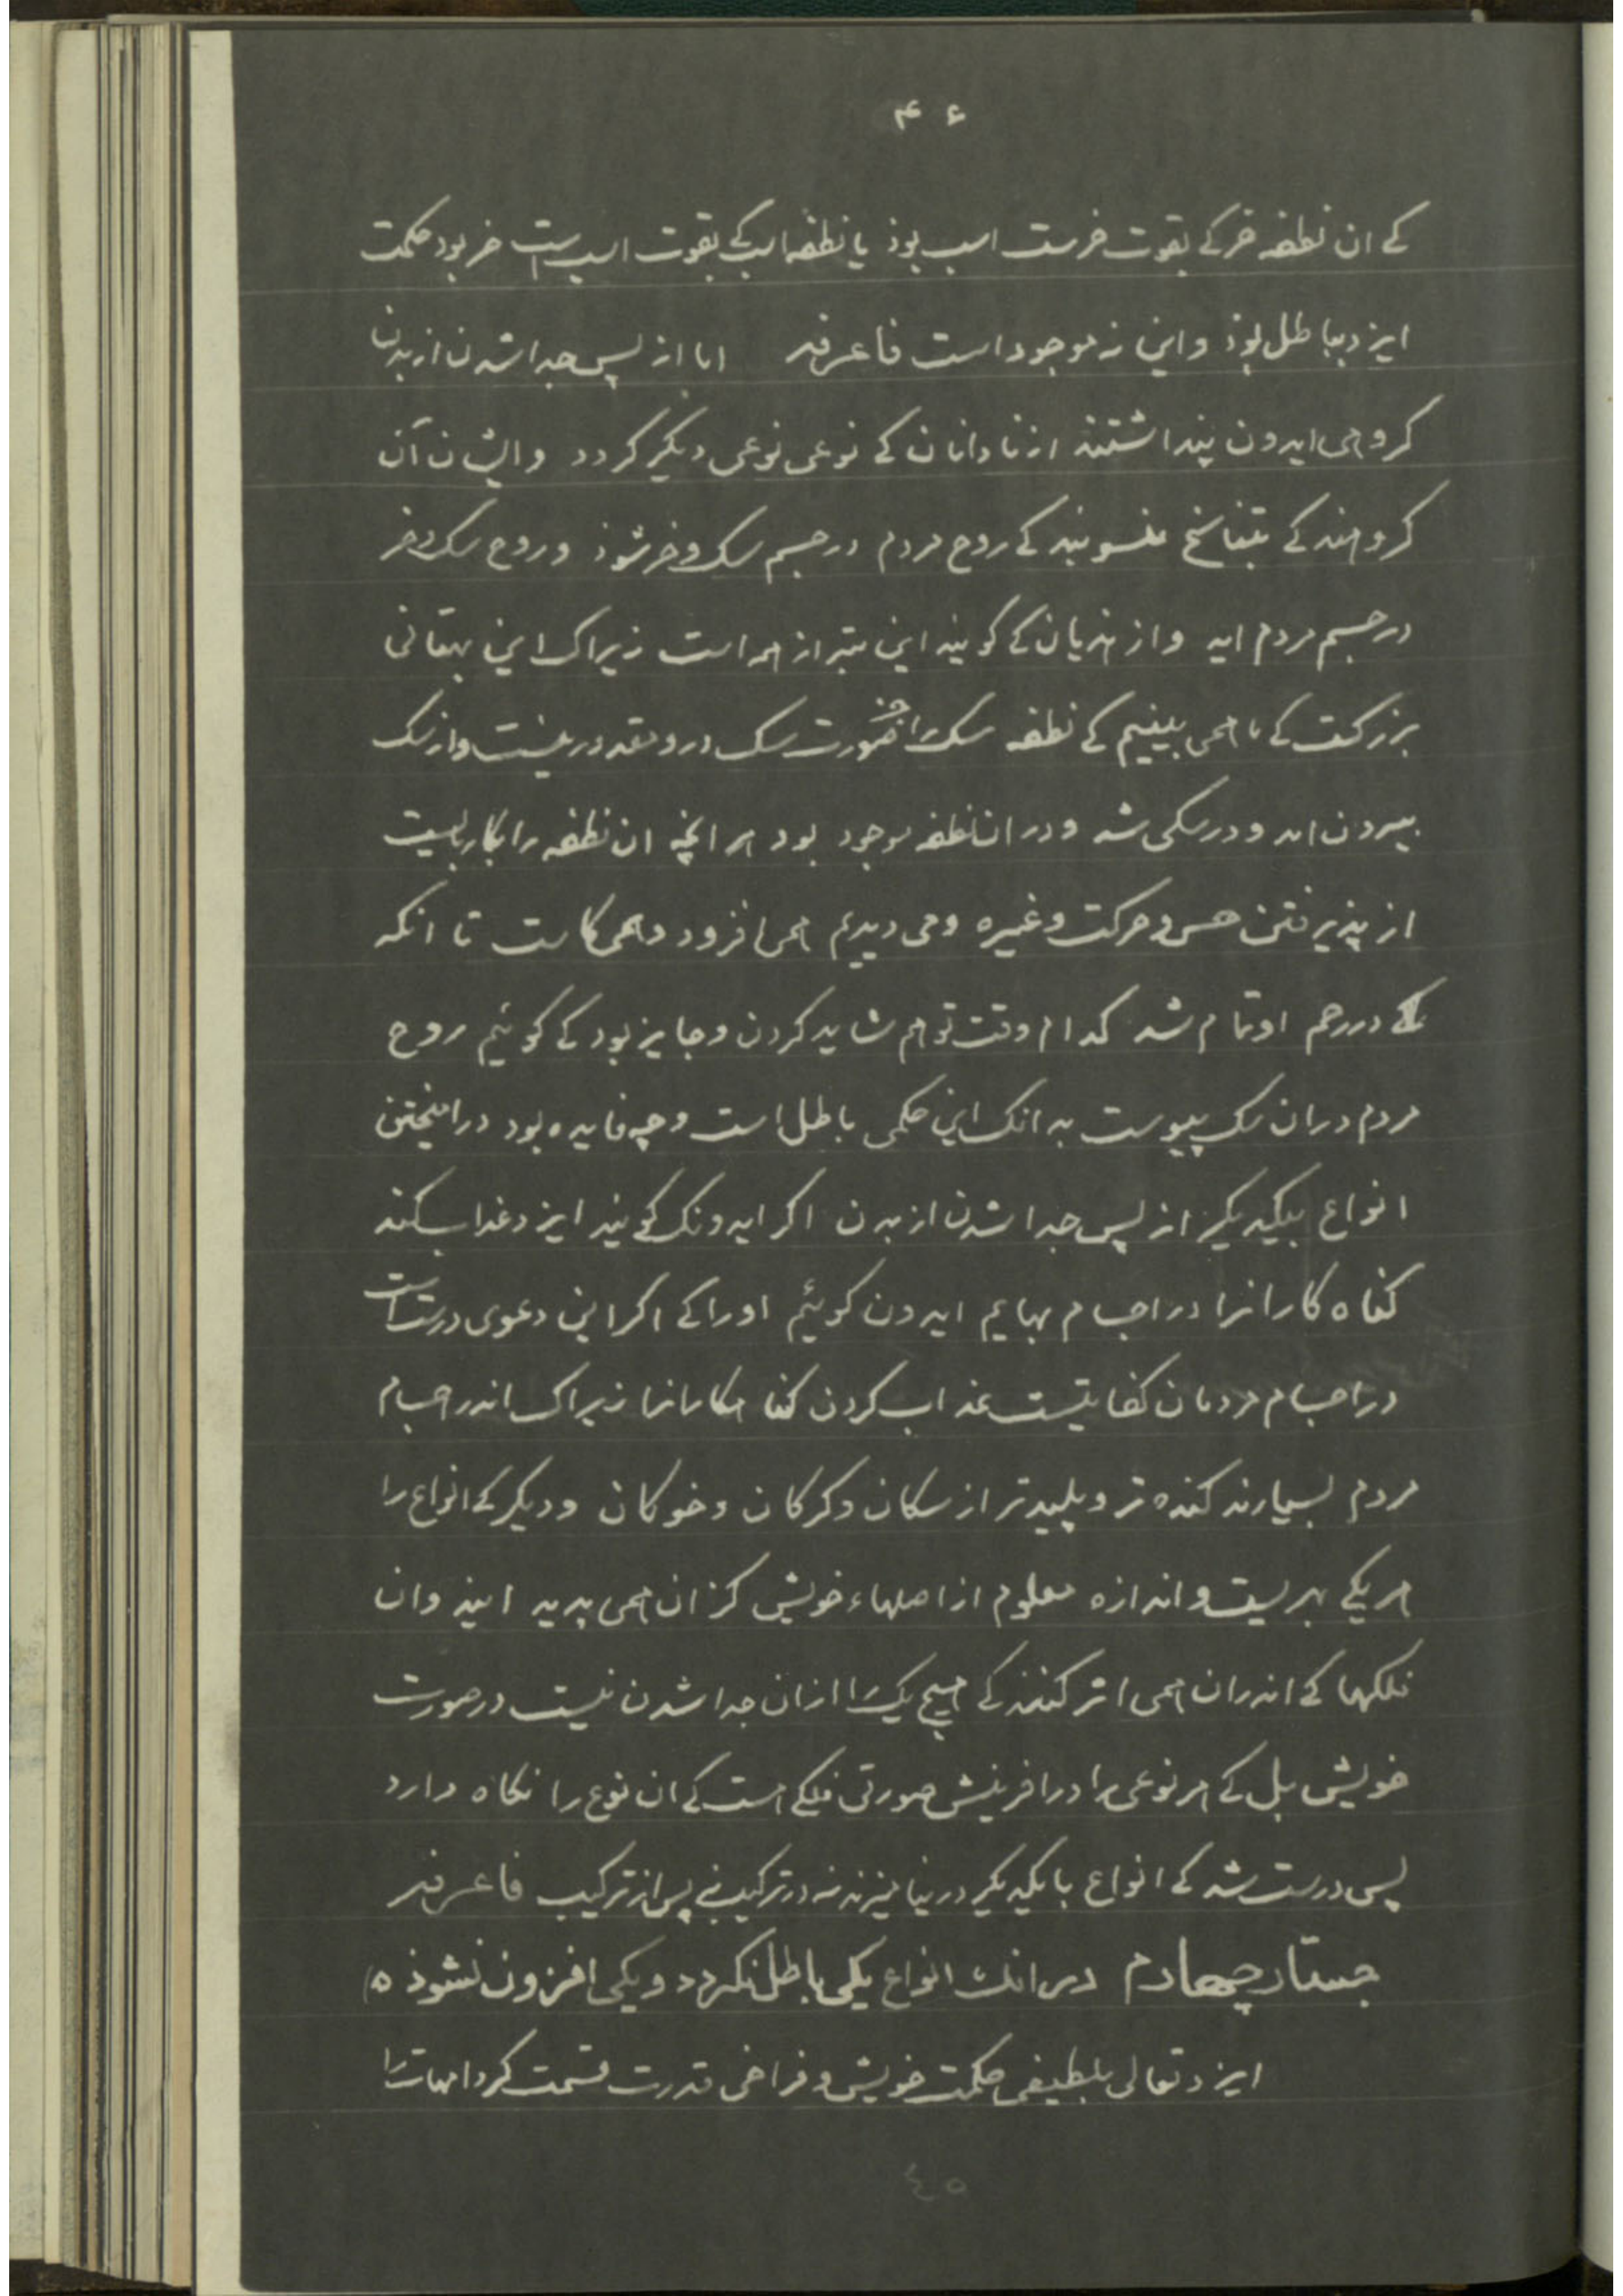 ۴۶
کے ان نطفه خر کے بقوت خرست اسب بوذ یا نطفه اسب کے بقوت اسب است خر بود حکمت
ایزد بباطل بوذ و این نه موجود است فاعرفه اما از پس جدا شدن از بدن
کروهی ایدون پنداشتند از نادانان کے نوعی نوعی دیکر کردد و ایشان آن
کروهند کے بتناسخ منسوبند کے روح مردم در جسم سک و خر شوذ و روح سک و خر
در جسم مردم اید و از هذیان کے کویند این بتر از همه است زیراک این بهتانی
بزرکست کے ما همی بینیم کے نطفه سک را جز صورت سک درو مقدور نیست و از سک
بیرون امد و در سکی شد و در ان نطفه موجود بود هر انچه ان نطفه را بکار بایست
از پذیرفتن حس و حرکت و غیره و می دیدیم همی افزود و همی کاست تا انکه
کے در رحم او تمام شد کدام وقت توهم شاید کردن و جایز بود کے کوئیم روح
مردم در ان سک پیوست بدانک این حکمی باطل است و چه فایده بود در امیختن
انواع بیکدیکر از پس جدا شدن از بدن اکر ایدونک کویند ایزد عذاب کند
کناه کارانرا در اجسام بهایم ایدون کوئیم اورا کے اکر این دعوی درست است
در اجسام مردمان کفایتست عذاب کردن کناهکارانرا زیراک اندر اجسام
مردم بسیارند کنده تر و پلیدتر از سکان و کرکان و خوکان و دیکر کے انواع را
هر یکے بهریست و اندازه معلوم از اصلهاء خویش کز ان همی پدید ایند وان
فلکها کے اندران همی اثر کنند کے هیچ یک را ازان جدا شدن نیست در صورت
خویش بل کے هر نوعی را در افرینش صورتی فلکے است کے ان نوع را نکاه دارد
پس درست شد کے انواع با یکدیکر در نیامیزند نه در ترکیب نے پس از ترکیب فاعرفه
جستار چهارم در انک انواع یکی باطل نکردد و یکی افزون نشوذ ه
ایزد تعالی بلطیفی حکمت خویش و فراخی قدرت قسمت کرد امهات را
٤٥